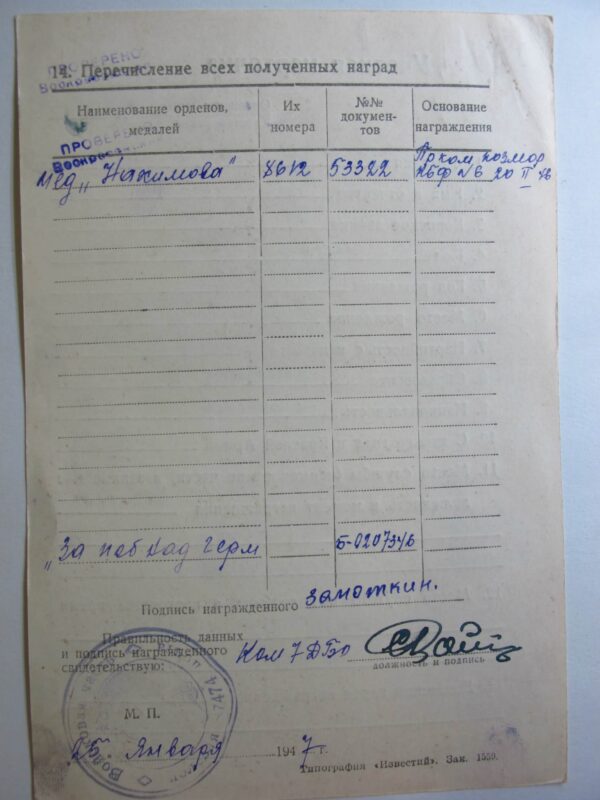 ПРОВЕРЕНО
14. Перечисление всех полученных наград
Наименование орденов, медалей
Их номера
№№ докумен-тов
Основание награждения
ПРОВЕРЕ
мед „Нахимова"
8612
53322
Пр ком.
КБФ №6 20 II 46
„За поб над герм
Б-0207346
Подпись награжденного Замоткин.
Правильность данных
и подпись награжденного
свидетельствую:
Ком 7 ДБо
должность и подпись
М. П.
„25" Января 1947 г.
Типография «Известий». Зак. 1559.